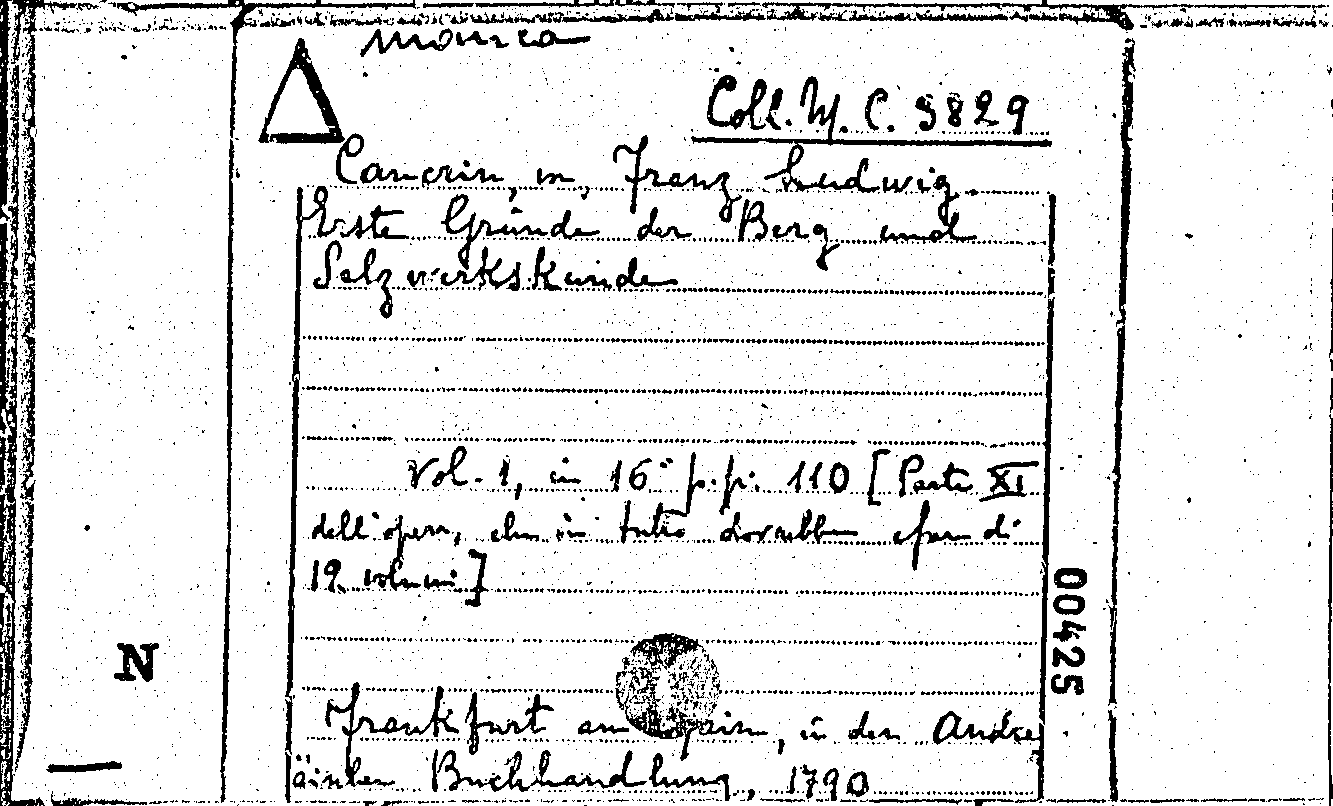 monica
Coll. M. C. 9829
Cancrin, von, Franz Ludwig.
Erste Gründe der Berg und
Salzwerkskunde
Vol. 1, in 16° p.p. 110 [Parte XI
dell'opera, che in tutto dovrebbe essere di
19 volumi]
00425
N
Frankfurt am Main, in der Andre
äischen Buchhandlung, 1790